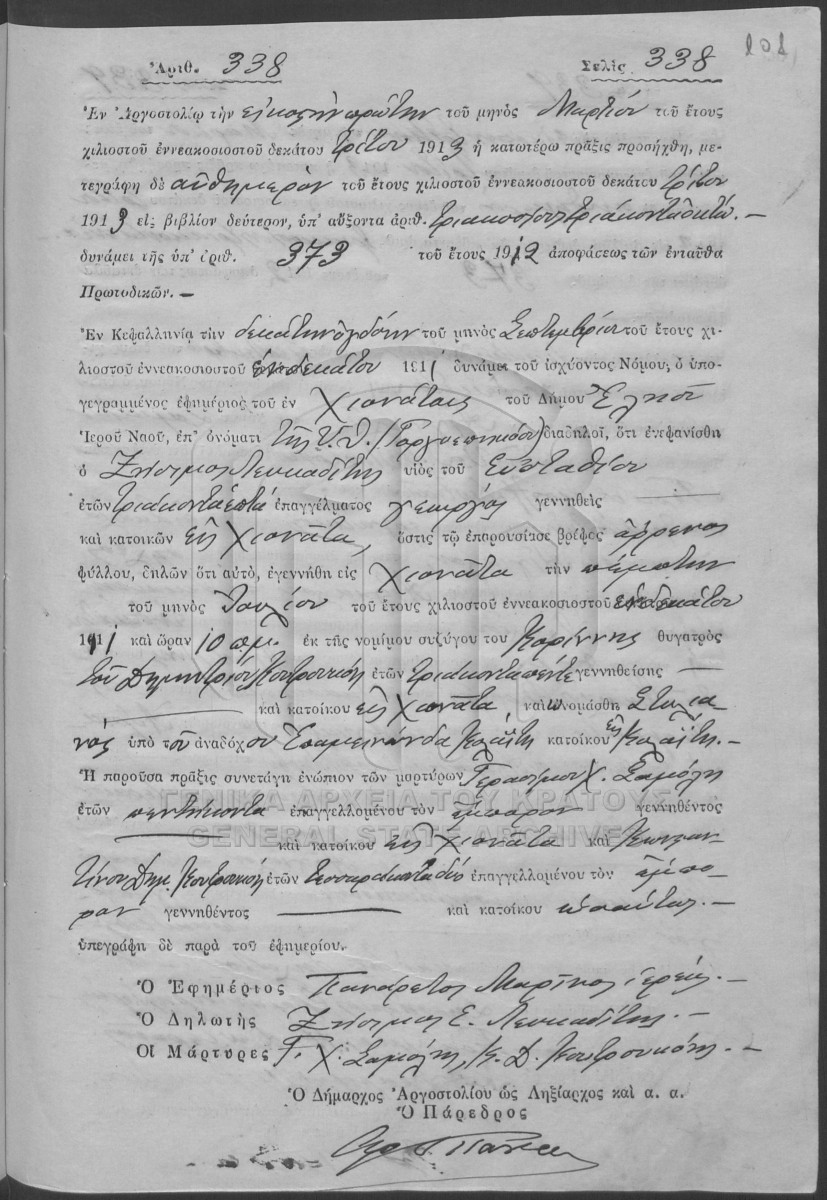 101
Ἀριθ. 338 Σελὶς 338
Ἐν Ἀργοστολίῳ τὴν εἰκοστὴν πρώτην τοῦ μηνὸς Μαρτίου τοῦ ἔτους
χιλιοστοῦ ἐννεακοσιοστοῦ δεκάτου τρίτου 1913 ἡ κατωτέρω πρᾶξις προσήχθη, με-
τεγράφη δὲ αὐθημερὸν τοῦ ἔτους χιλιοστοῦ ἐννεακοσιοστοῦ δεκάτου τρίτου
1913 εἰς βιβλίον δεύτερον, ὑπ' αὔξοντα ἀριθ. τριακόσια τριάκοντα ὀκτώ. —
δυνάμει τῆς ὑπ' ἀριθ. 373 τοῦ ἔτους 1912 ἀποφάσεως τῶν ἐνταῦθα
Πρωτοδικῶν. —
Ἐν Κεφαλληνίᾳ τὴν δεκάτην ὀγδόην τοῦ μηνὸς Σεπτεμβρίου τοῦ ἔτους χι-
λιοστοῦ ἐννεακοσιοστοῦ ἑνδεκάτου 1911 δυνάμει τοῦ ἰσχύοντος Νόμου, ὁ ὑπο-
γεγραμμένος ἐφημέριος τοῦ ἐν Χιονάταις τοῦ Δήμου Ἐλειοῦ
Ἱεροῦ Ναοῦ, ἐπ' ὀνόματι τῆς Υ. Θ. διαδηλοῖ, ὅτι ἐνεφανίσθη
ὁ Ζήσιμος Λευκαδίτης υἱὸς τοῦ Εὐσταθίου
ἐτῶν τριάκοντα ἑπτὰ ἐπαγγέλματος γεωργὸς γεννηθεὶς —
καὶ κατοικῶν εἰς Χιονάτα, ὅστις τῷ ἐπαρουσίασε βρέφος ἄρρενος
φύλλου, δηλῶν ὅτι αὐτὸ, ἐγεννήθη εἰς Χιονάτα τὴν πέμπτην
τοῦ μηνὸς Ἰουλίου τοῦ ἔτους χιλιοστοῦ ἐννεακοσιοστοῦ ἑνδεκάτου
1911 καὶ ὥραν 10 π.μ. ἐκ τῆς νομίμου συζύγου του Κορίννης θυγατρὸς
τοῦ Δημητρίου Κουτρουκόη ἐτῶν τριάκοντα πέντε γεννηθείσης —
— καὶ κατοίκου εἰς Χιονάτα καὶ ὠνομάσθη Στυλια-
νὸς ὑπὸ τοῦ ἀναδόχου Ἐπαμεινώνδα Κολαΐτη κατοίκου εἰς Κολαΐτη. —
Ἡ παροῦσα πρᾶξις συνετάγη ἐνώπιον τῶν μαρτύρων Γερασίμου Χ. Σαμόλη
ἐτῶν πεντήκοντα ἐπαγγελλομένου τὸν ἔμπορον γεννηθέντος
— καὶ κατοίκου εἰς Χιονάτα καὶ Κωνσταν-
τίνου Δημ. Κουτρουκόη ἐτῶν τεσσαράκοντα δύο ἐπαγγελλομένου τὸν ἔμπο-
ρον γεννηθέντος — καὶ κατοίκου ὡσαύτως. —
ὑπεγράφη δὲ παρὰ τοῦ ἐφημερίου.
Ὁ Ἐφημέριος Πανάρετος Μαρῖνος ἱερεύς. —
Ὁ Δηλωτὴς Ζήσιμος Ε. Λευκαδίτης. —
Οἱ Μάρτυρες Γ. Χ. Σαμόλης, Κ. Δ. Κουτρουκόης. —
Ὁ Δήμαρχος Ἀργοστολίου ὡς Ληξίαρχος καὶ α. α.
Ὁ Πάρεδρος
ΓΕΝΙΚΑ ΑΡΧΕΙΑ ΤΟΥ ΚΡΑΤΟΥΣ
GENERAL STATE ARCHIVES